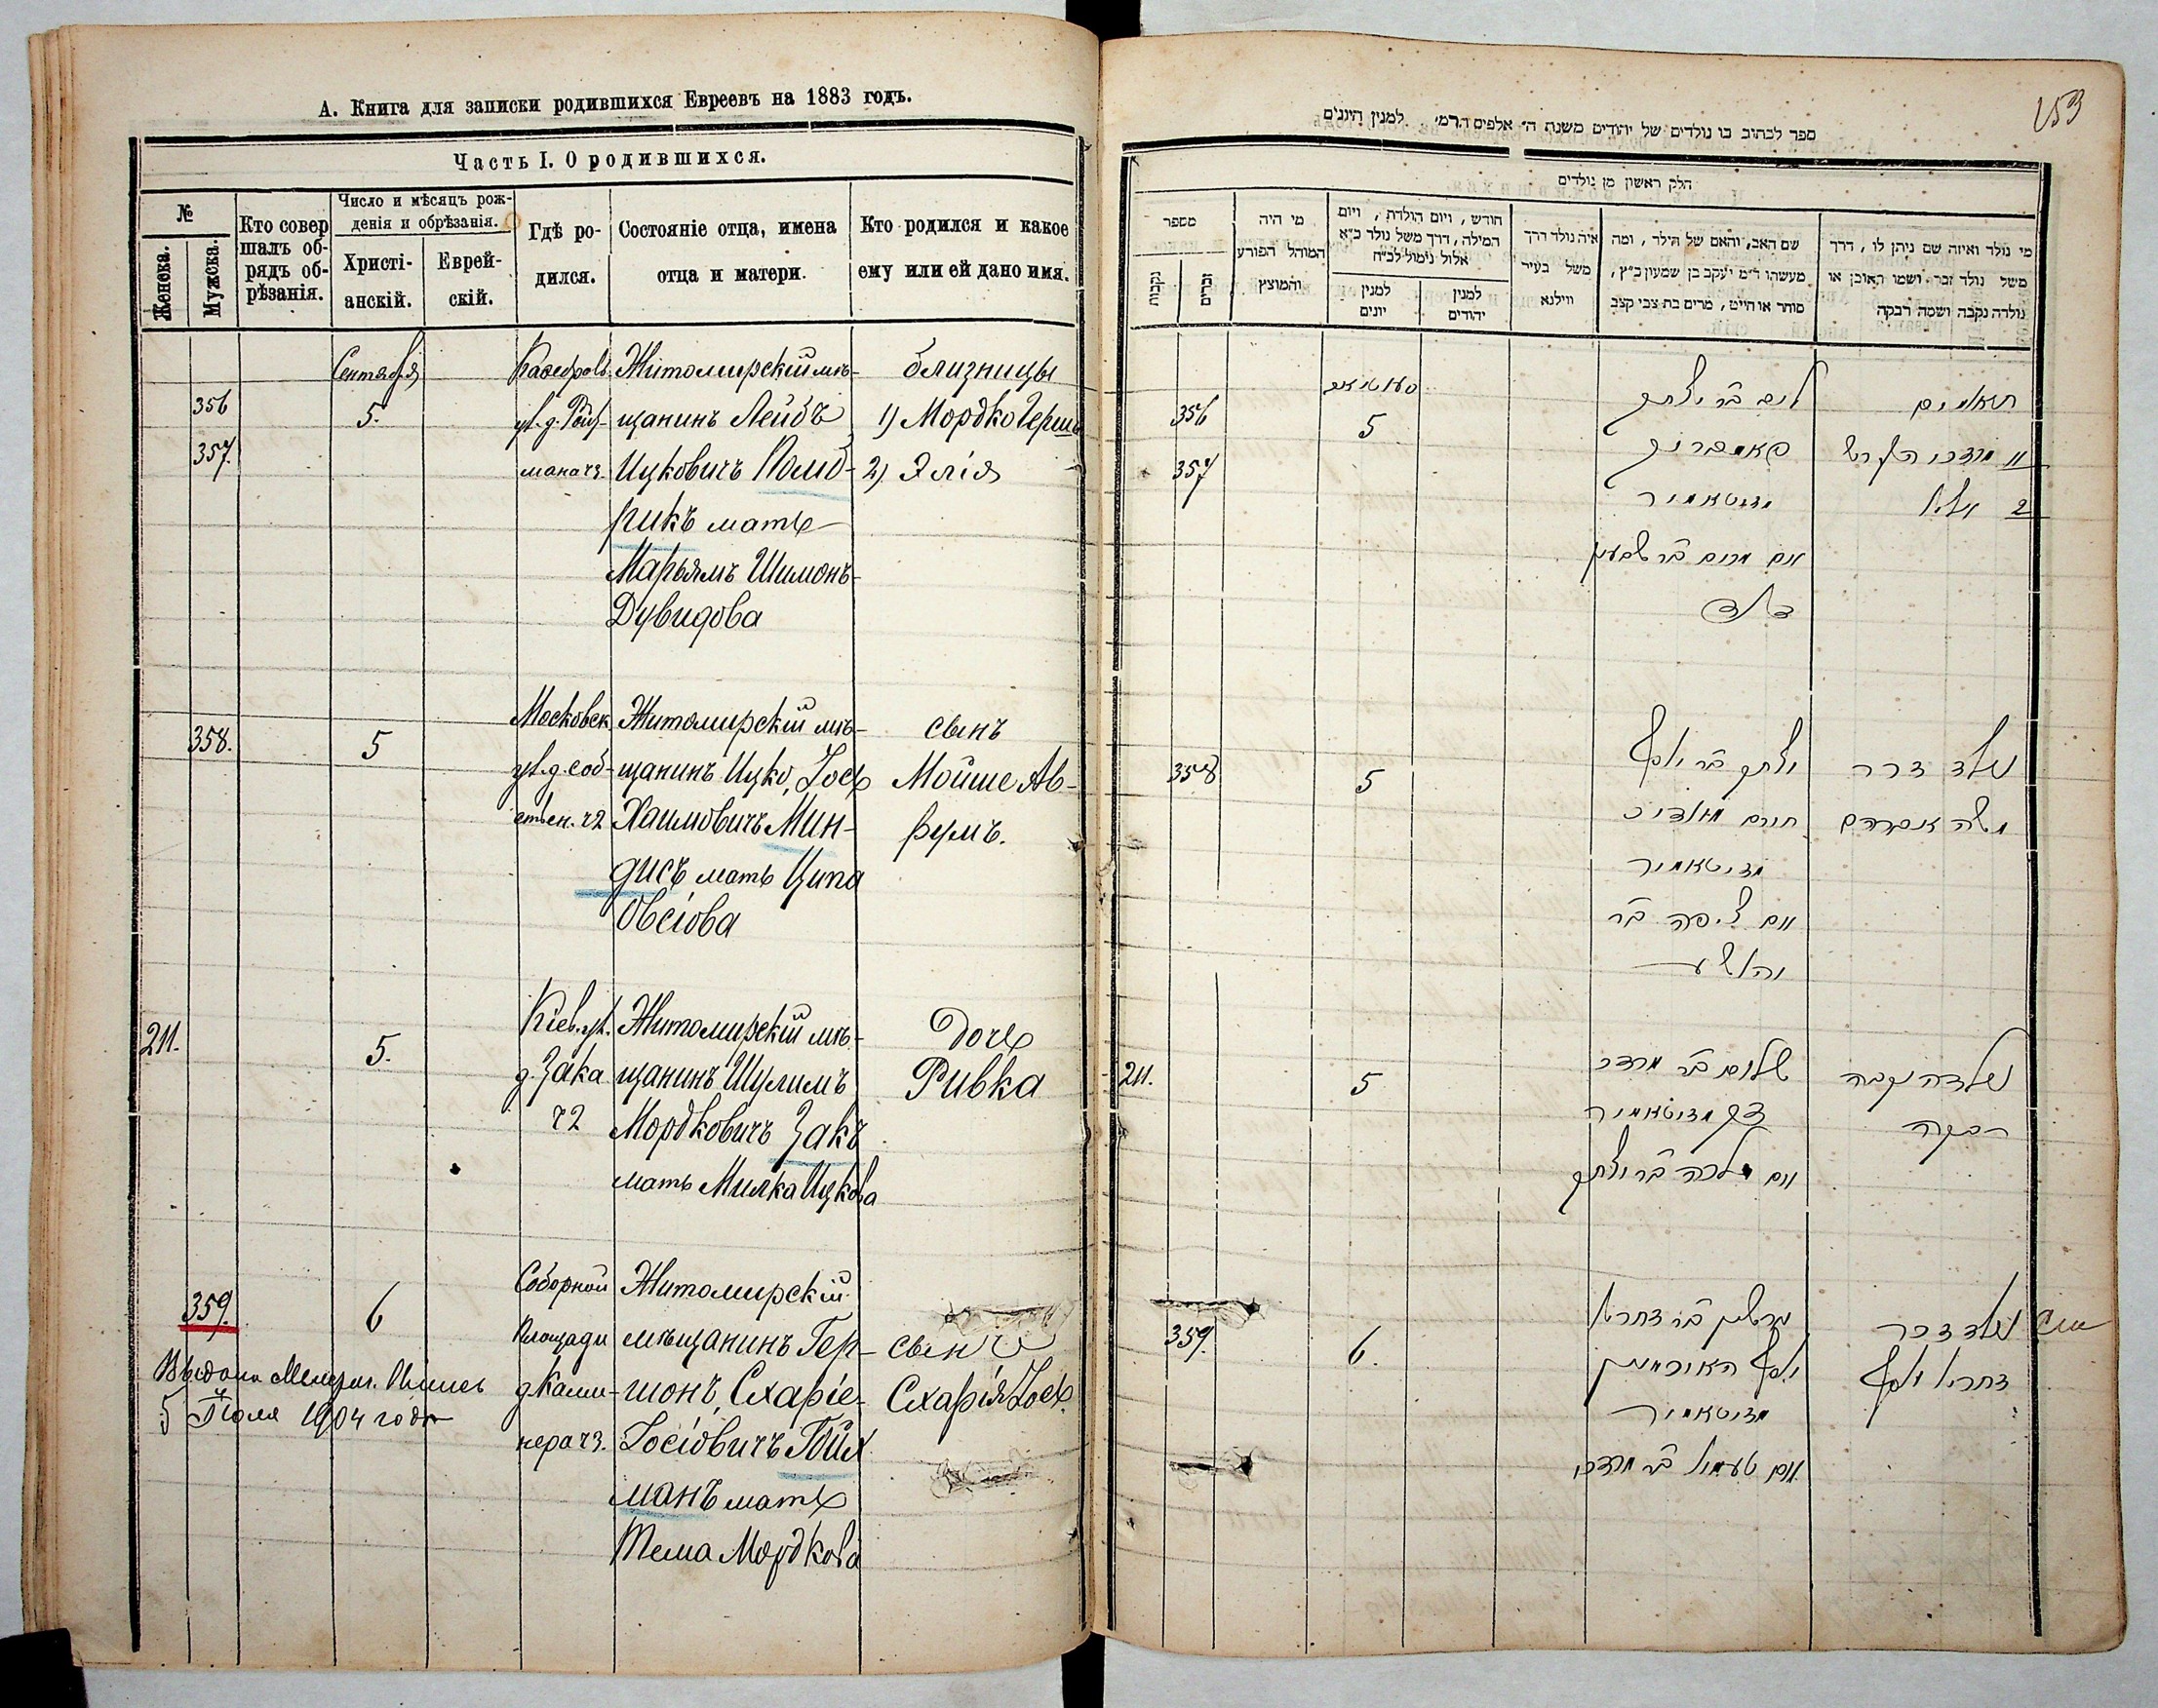 А. Книга для записки родившихся Евреевъ на 1883 годъ.
Часть I. О родившихся.
№
Женска.
Мужска.
Кто совер
шалъ об-
рядъ об-
рѣзанія.
Число и мѣсяцъ рож-
денія и обрѣзанія.
Христі-
анскій.
Еврей-
скій.
Гдѣ ро-
дился.
Состояніе отца, имена
отца и матери.
Кто родился и какое
ему или ей дано имя.
356
357.
Сентября
5.
Житомирскій мѣ-
щанинъ Лейбъ
Ицковичъ Помб-
рикъ мать
Марьямъ Шимонъ-
Дувидова
близнецы
1) Мордко Герш
2) Элія
358.
5
Московск.
ул. д. соб-
ствен. ч2
Житомирскій мѣ-
щанинъ Ицко, Іось
Хаимовичъ Мин-
дисъ мать Ципа
Овсіова
сынъ
Мойше Ав-
румъ.
211.
5.
Кіев. ул.
д. Зака
ч2
Житомирскій мѣ-
щанинъ Шулимъ
Мордковичъ Закъ
мать Милка Ицкова
Дочь
Ривка
359.
6
Соборной
Площади
д. Ками-
нера ч3.
Житомирскій
мѣщанинъ Гер-
шонъ, Схаріе-
Іосіовичъ Гойх
манъ мать
Тема Мордкова
сынъ
Схарія Іось
5 Іюля 1904 года
153
ספר לכתוב בו נולדים של יהודים משנת ה״ אלפים הרמ״ למנין היונים
חלק ראשון מן נולדים
מספר
נקבות
זכרים
מי היה
המוהל הפורע
והמוצץ
חודש, ויום הולדת, ויום
המילה, דרך משל נולד כ״א
אלול נימול לכ״ח
למנין
יונים
למנין
יהודים
איה נולד דרך
משל בעיר
ווילנא
שם האב, והאם של הילד, ומה
מעשהו ד״מ יעקב בן שמעון כ״ץ,
סוחר או חייט, מרים בת צבי קצב
מי נולד ואיזה שם ניתן לו, דרך
משל נולד זכר ושמו ראובן או
נולדה נקבה ושמה רבקה
356
357
5
ליב בר יצחק
מזיטאמיר
ואם מרים בר שמעון
דוד
תאומים
1) מרדכי הירש
2 אליי
358
5
יצחק בר יוסף
חיים
מזיטאמיר
ואם ציפה בר
יהושע
נולד זכר
משה אברהם
211.
5
שלום בר מרדכי
זק מזיטאמיר
ואם מלכה בר יצחק
נולדה נקבה
רבקה
359.
6.
גרשון בר זכריי
יוסף
מזיטאמיר
ואם טעמיל בר מרדכי
נולד זכר
זכריי יוסף